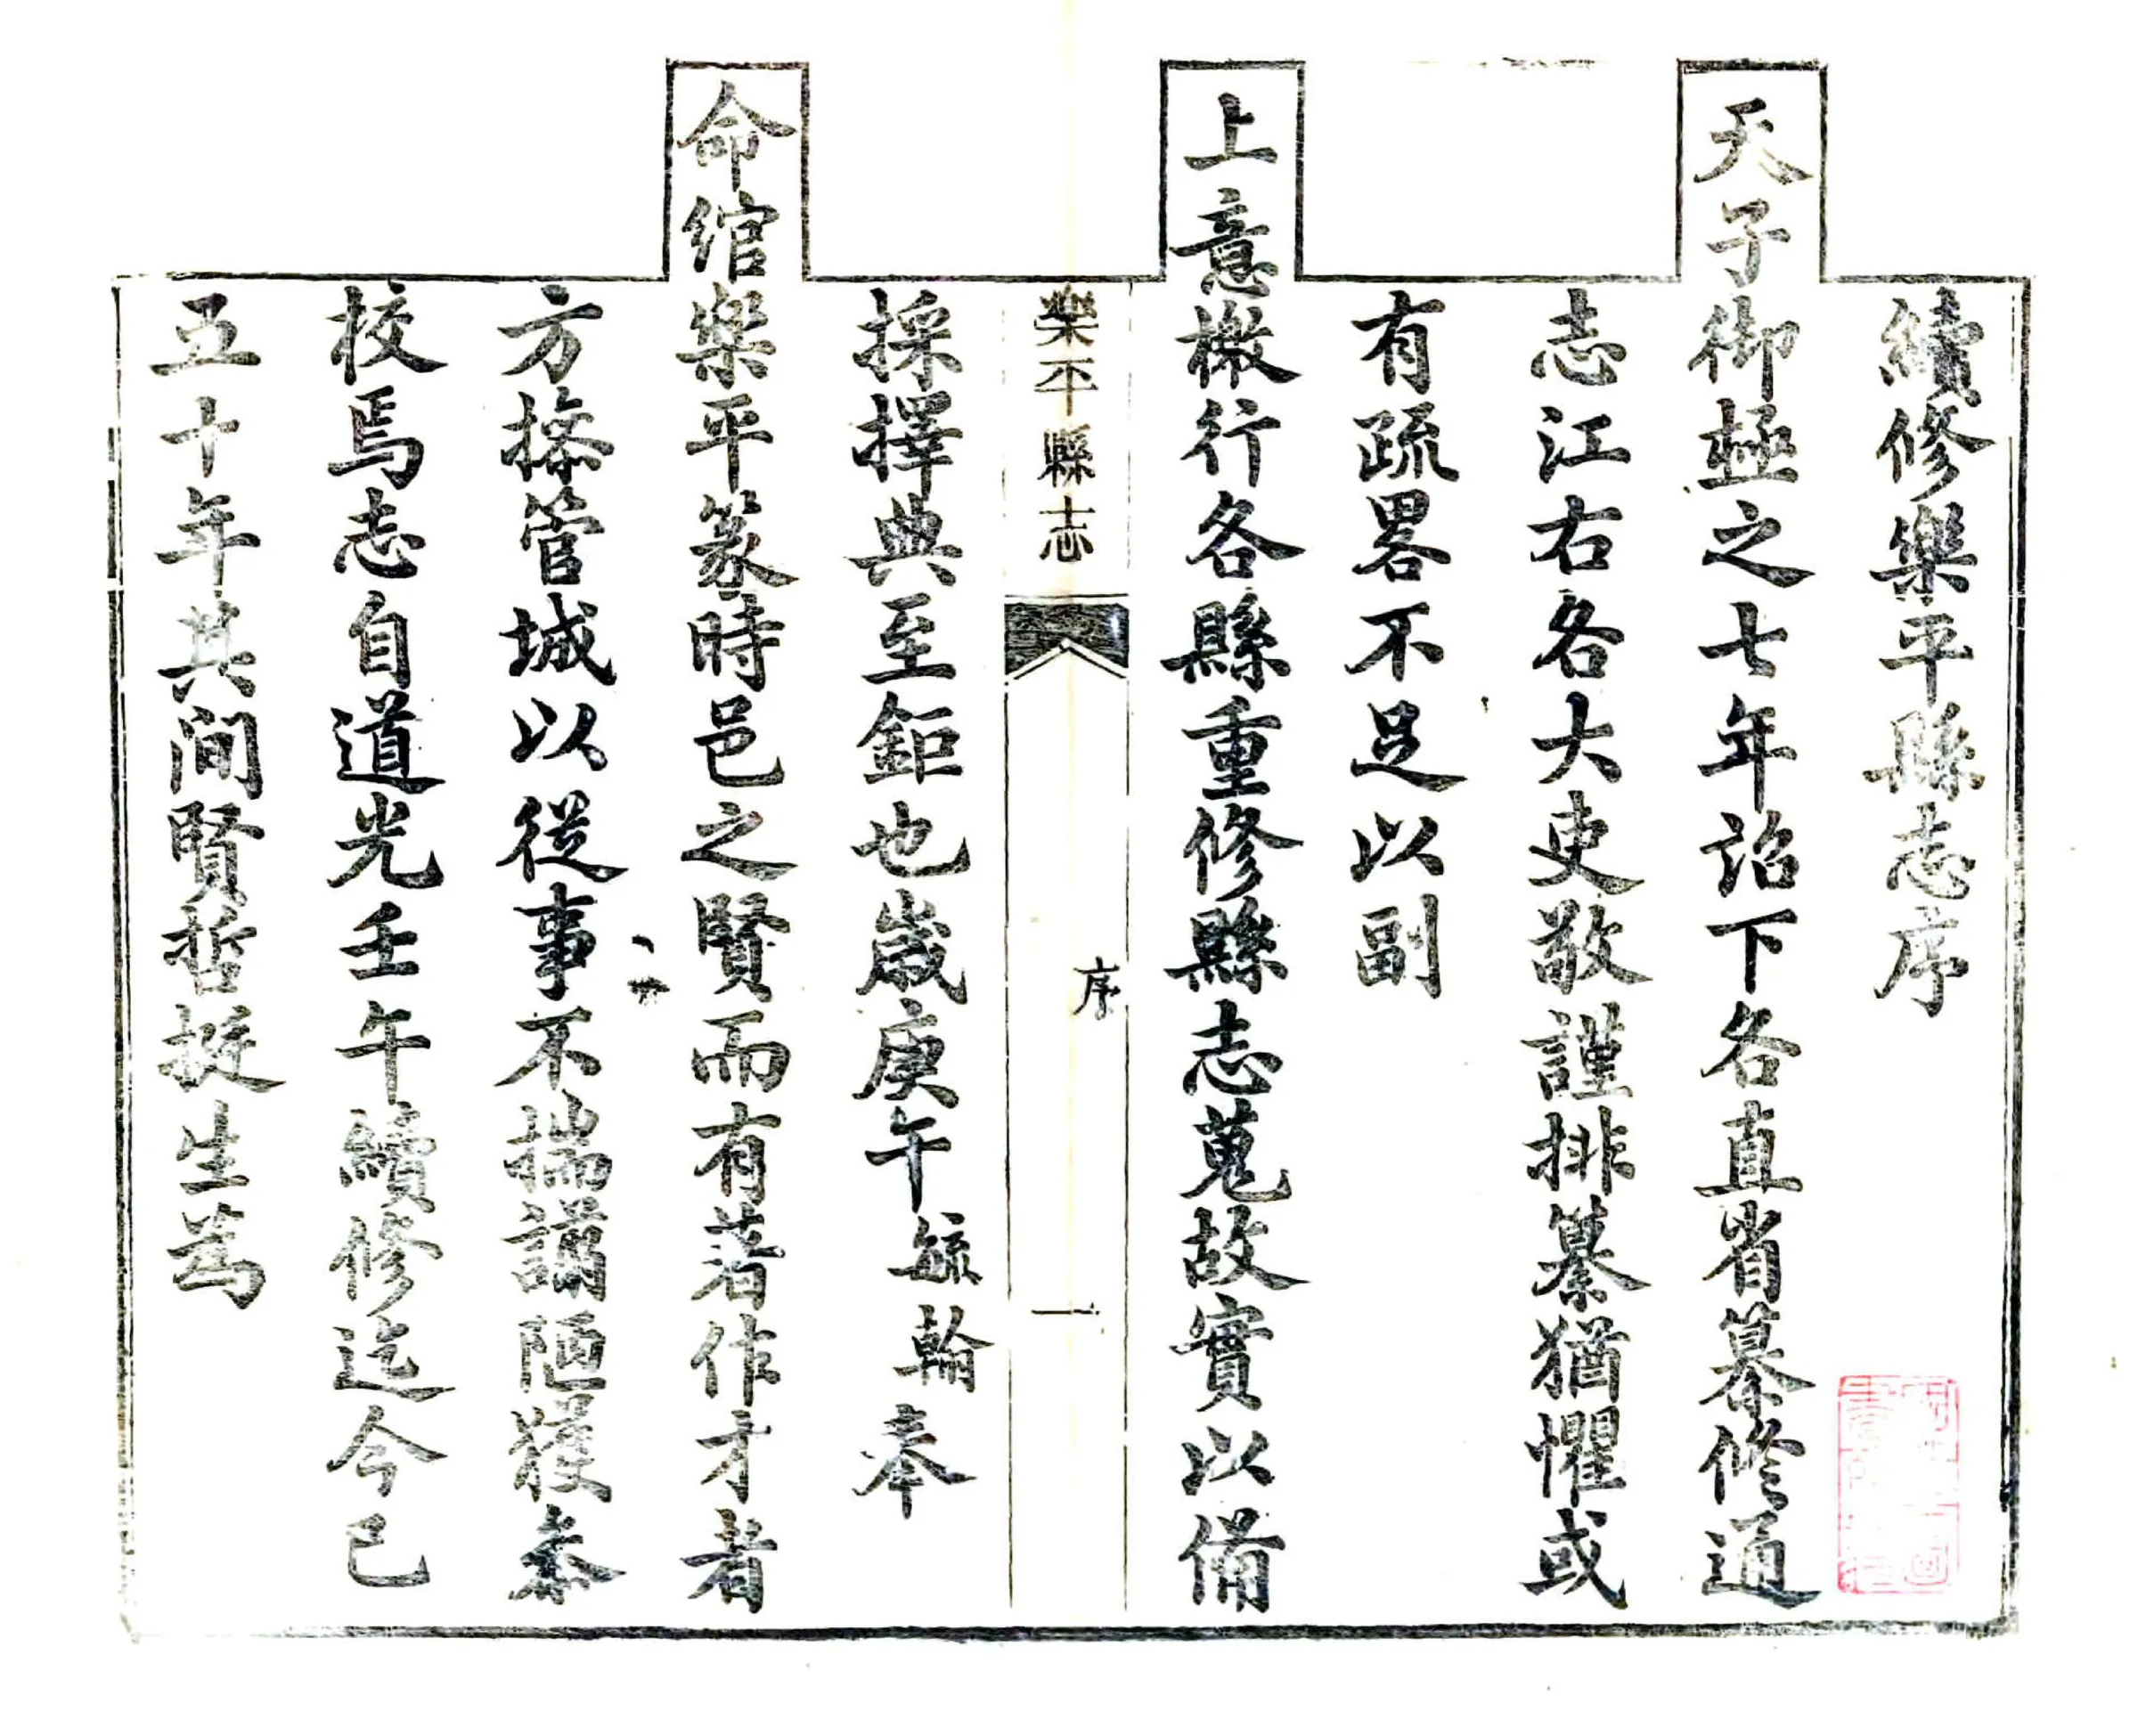 續修樂平縣志序
天子御極之七年詔下各直省纂修通
志江右各大吏敬謹排纂猶懼或
有疏畧不足以副
上意檄行各縣重修縣志蒐故實以備
樂平縣志
序
一
採擇典至鉅也歲庚午毓翰奉
命綰樂平篆時邑之賢而有著作才者
方搽管城以從事不揣譾陋獲叅
校焉志自道光壬午續修迄今已
五十年其间賢哲挺生篤